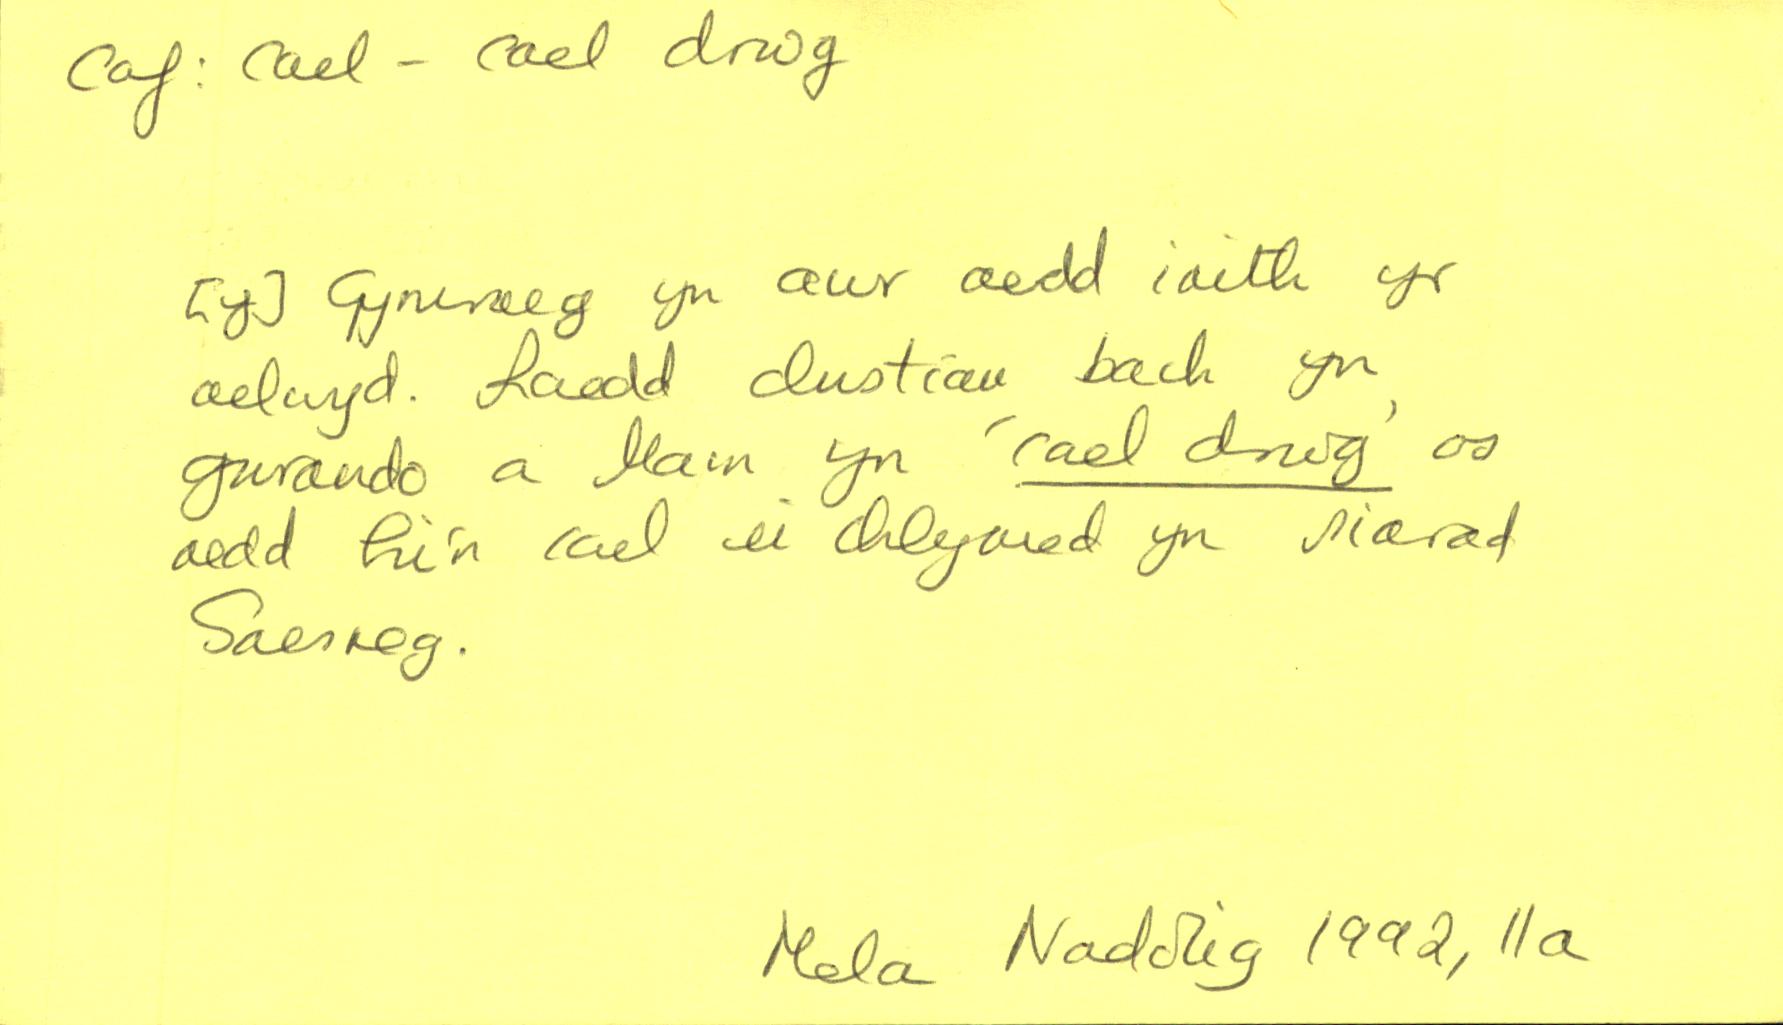 caf: cael – cael drwg
[y] Gymraeg yn awr oedd iaith yr
aelwyd. Roedd clustiau bach yn
gwrando a Mam yn 'cael drwg' os
oedd hi'n cael ei chlywed yn siarad
Saesneg.
Mela Nadolig 1992, 11a